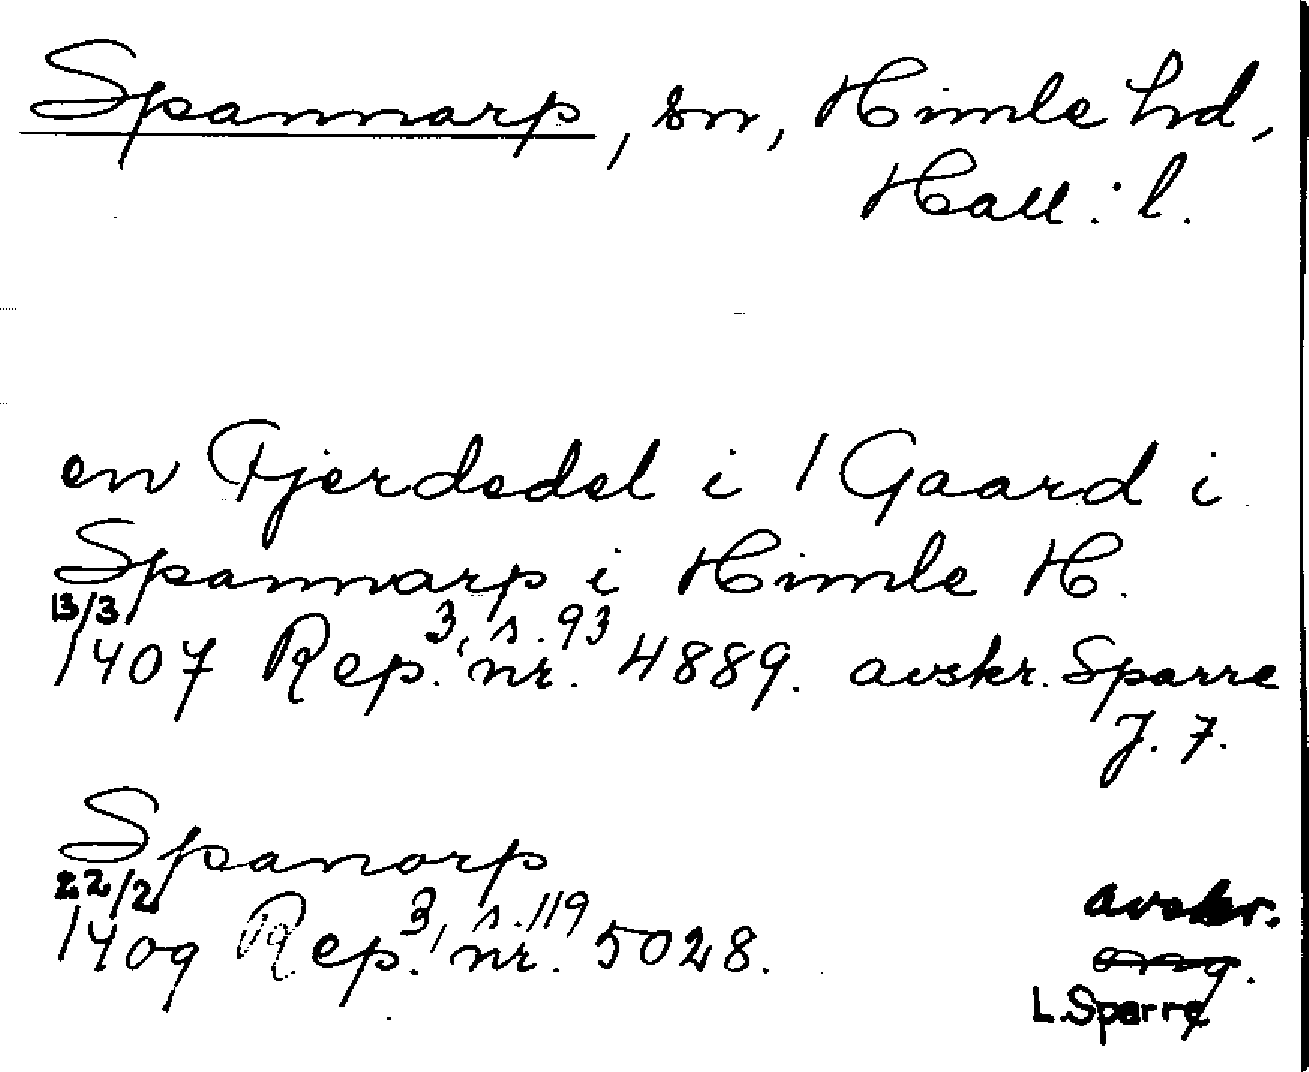 Spannarp, sn, Himle hd,
Hall. l.
en Fjerdedel i 1 Gaard i
Spannarp i Himle H.
13/3
1407 Rep. 3, s. 93 nr. 4889. avskr. Sparre
J. 7.
Spanorp
22/2
1409 Rep. 3, s. 119 nr. 5028.
avskr.
org.
L. Sparre